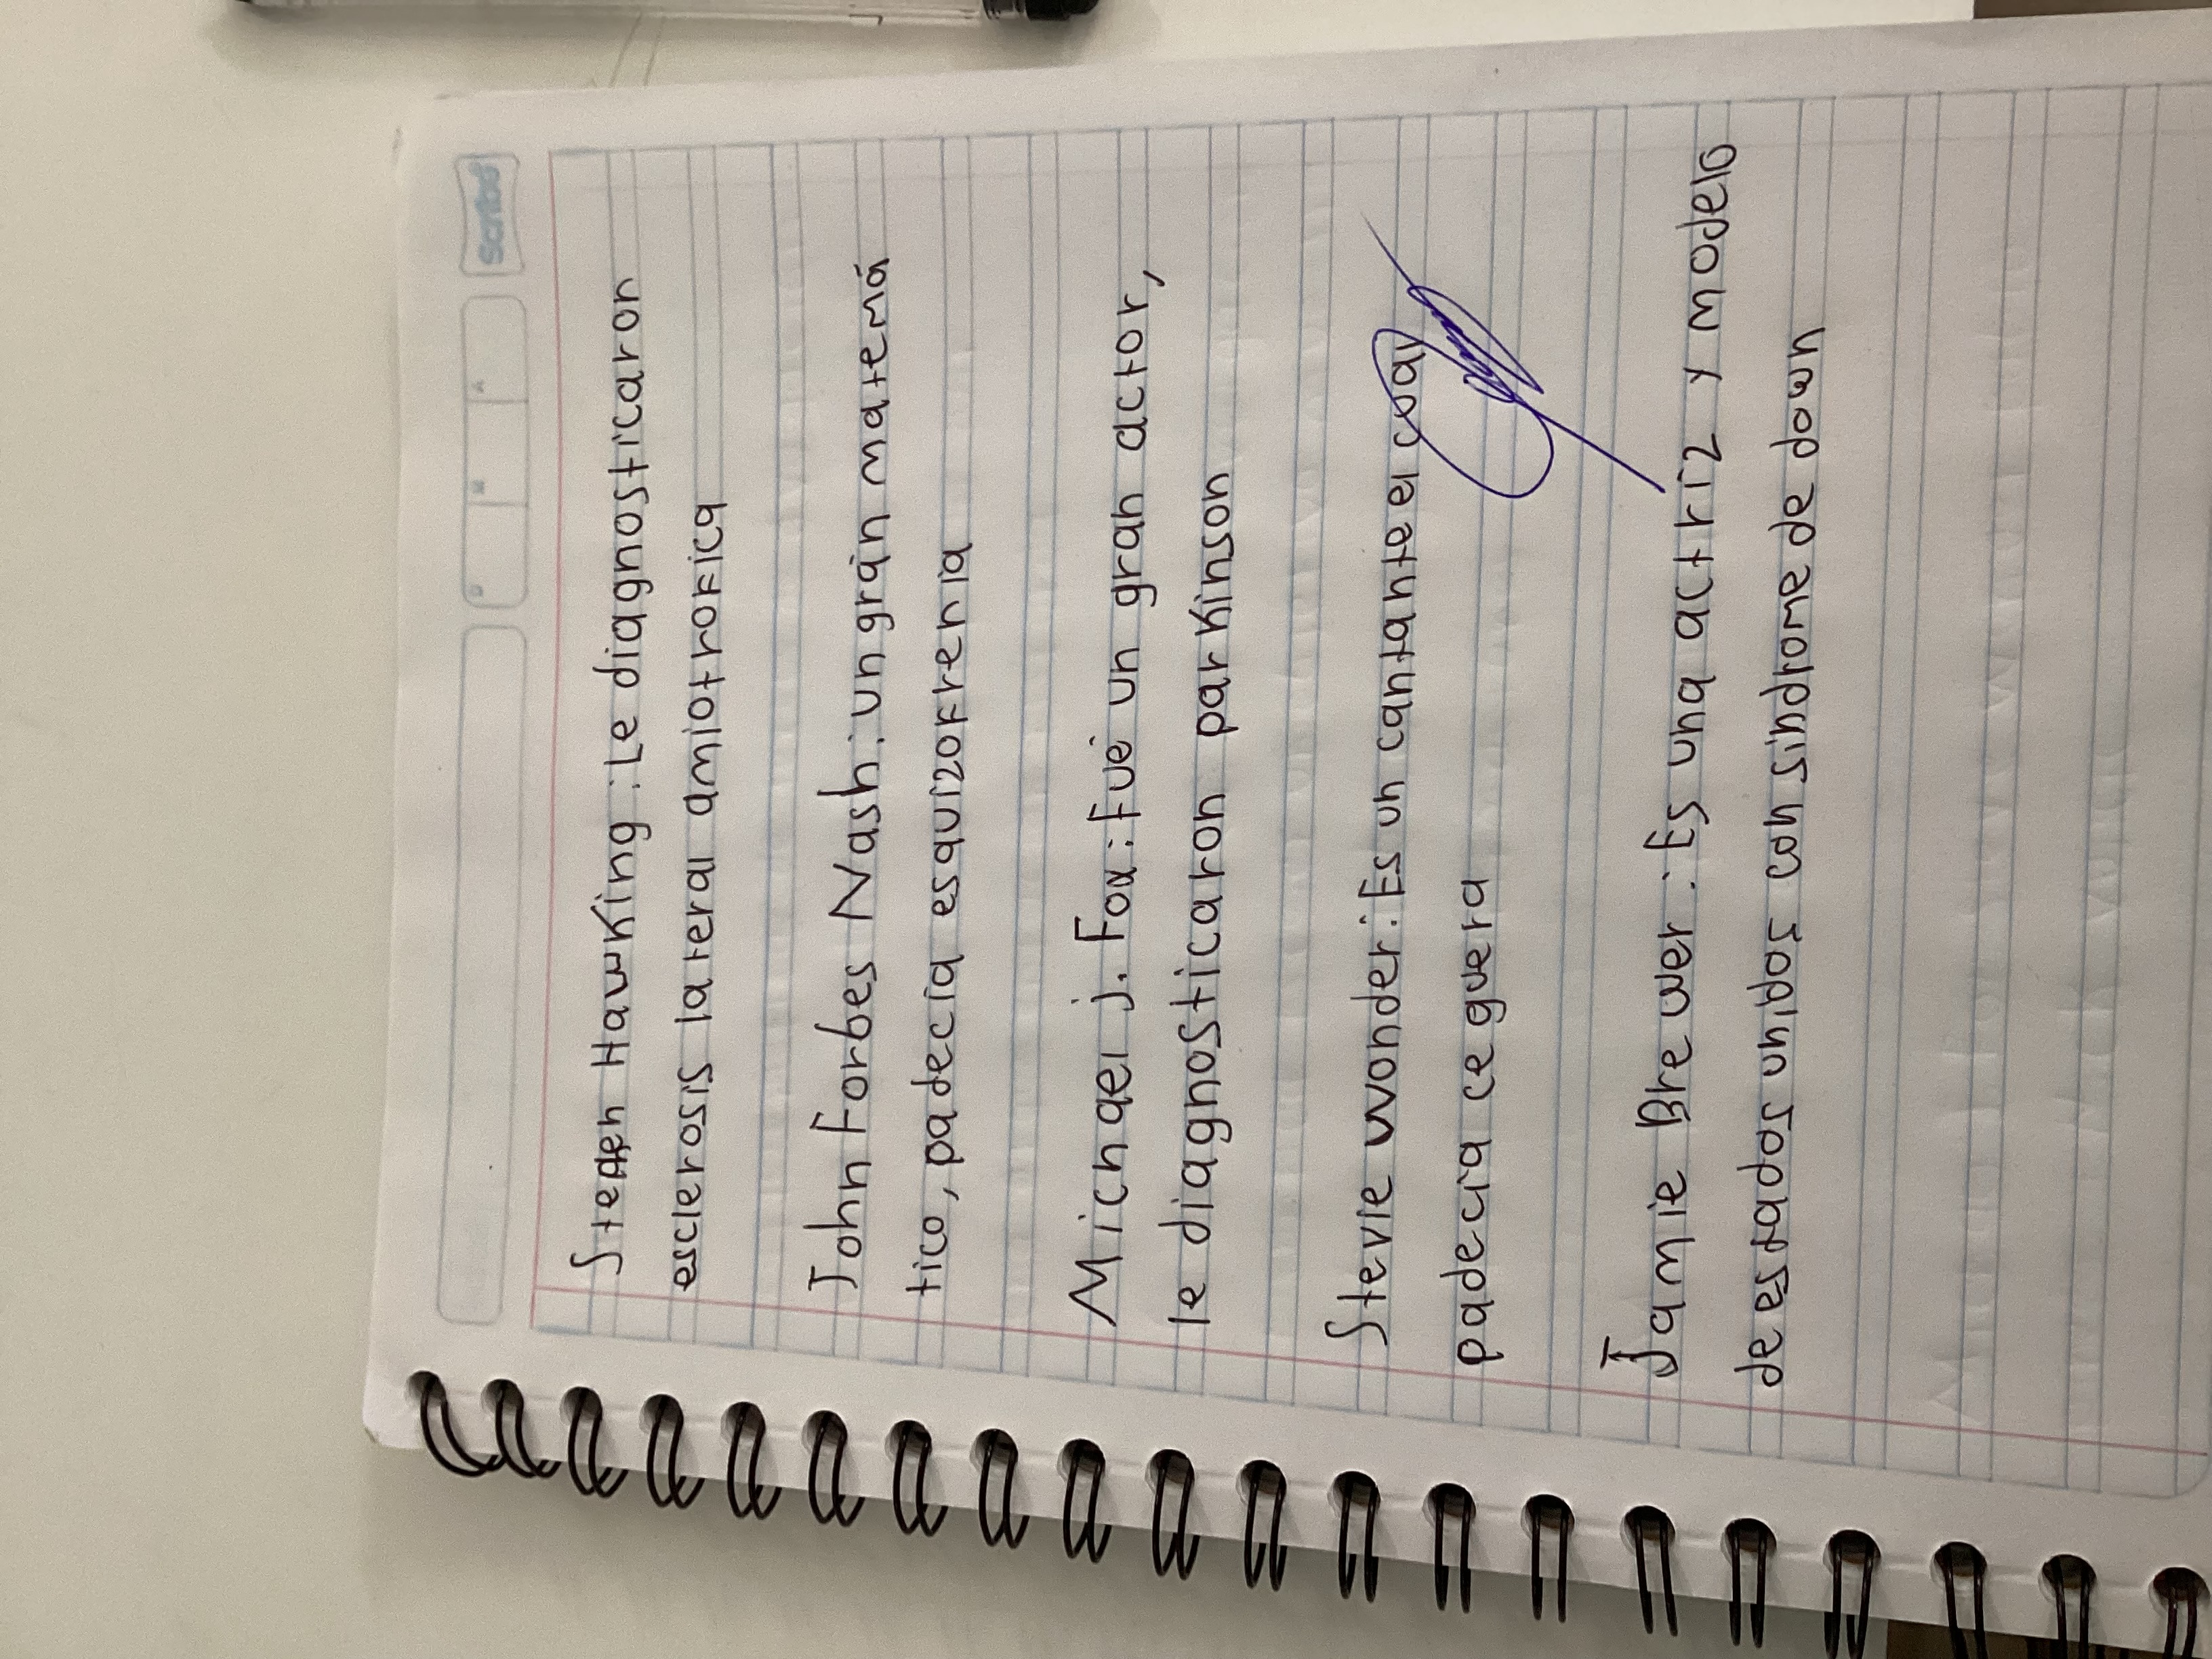 Scribe
D M A
Stephen Hawking: Le diagnosticaron
esclerosis lateral amiotrofica
John Forbes Nash: un gran matemá
tico, padecia esquizofrenia
Michael j. Fox: Fué un gran actor,
le diagnosticaron parkinson
Stevie wonder: Es un cantante el cual
padecia ceguera
Jamie Brewer: Es una actriz y modelo
de estados unidos con sindrome de down